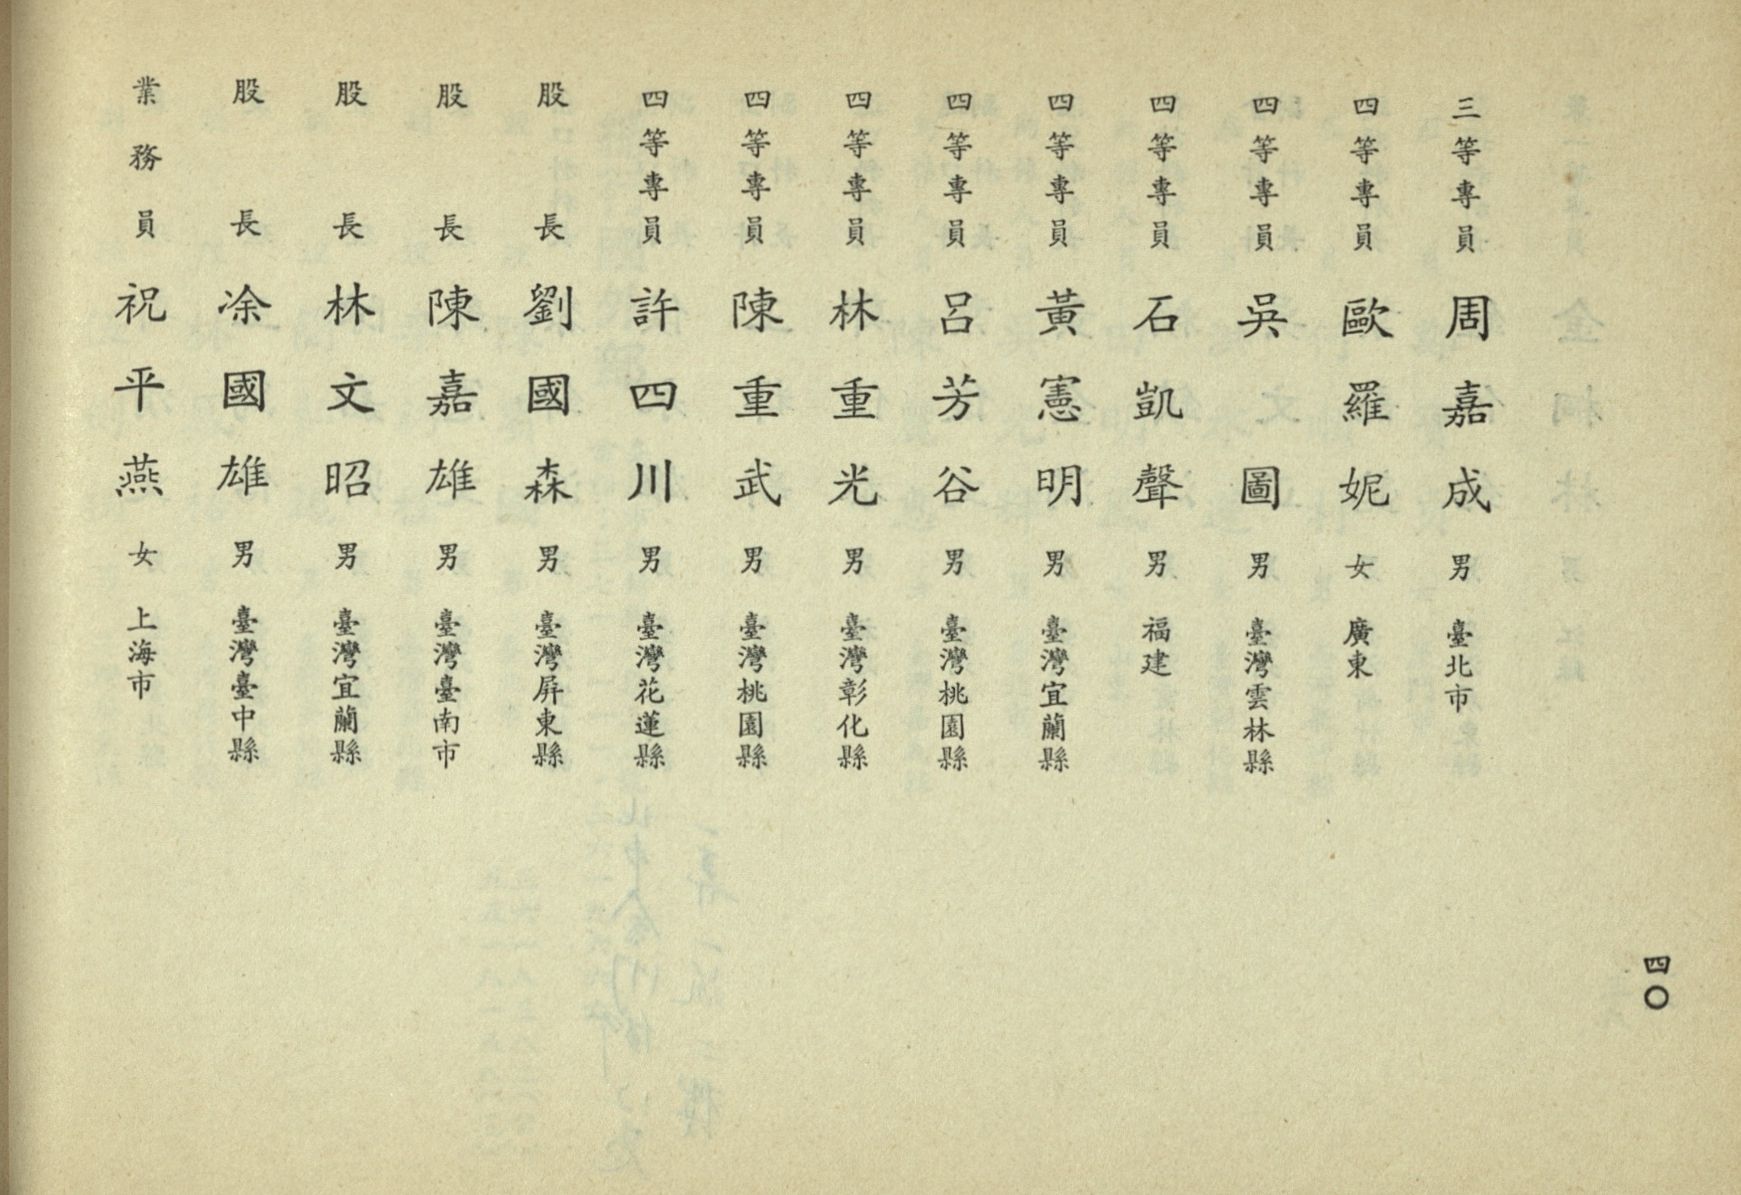 三等專員 周嘉成 男 臺北市
四等專員 歐羅妮 女 廣東
四等專員 吳圖 男 臺灣雲林縣
四等專員 石凱聲 男 福建
四等專員 黃憲明 男 臺灣宜蘭縣
四等專員 呂芳谷 男 臺灣桃園縣
四等專員 林重光 男 臺灣彰化縣
四等專員 陳重武 男 臺灣桃園縣
四等專員 許四川 男 臺灣花蓮縣
股長 劉國森 男 臺灣屏東縣
股長 陳嘉雄 男 臺灣臺南市
股長 林文昭 男 臺灣宜蘭縣
股長 凃國雄 男 臺灣臺中縣
業務員 祝平燕 女 上海市
四〇